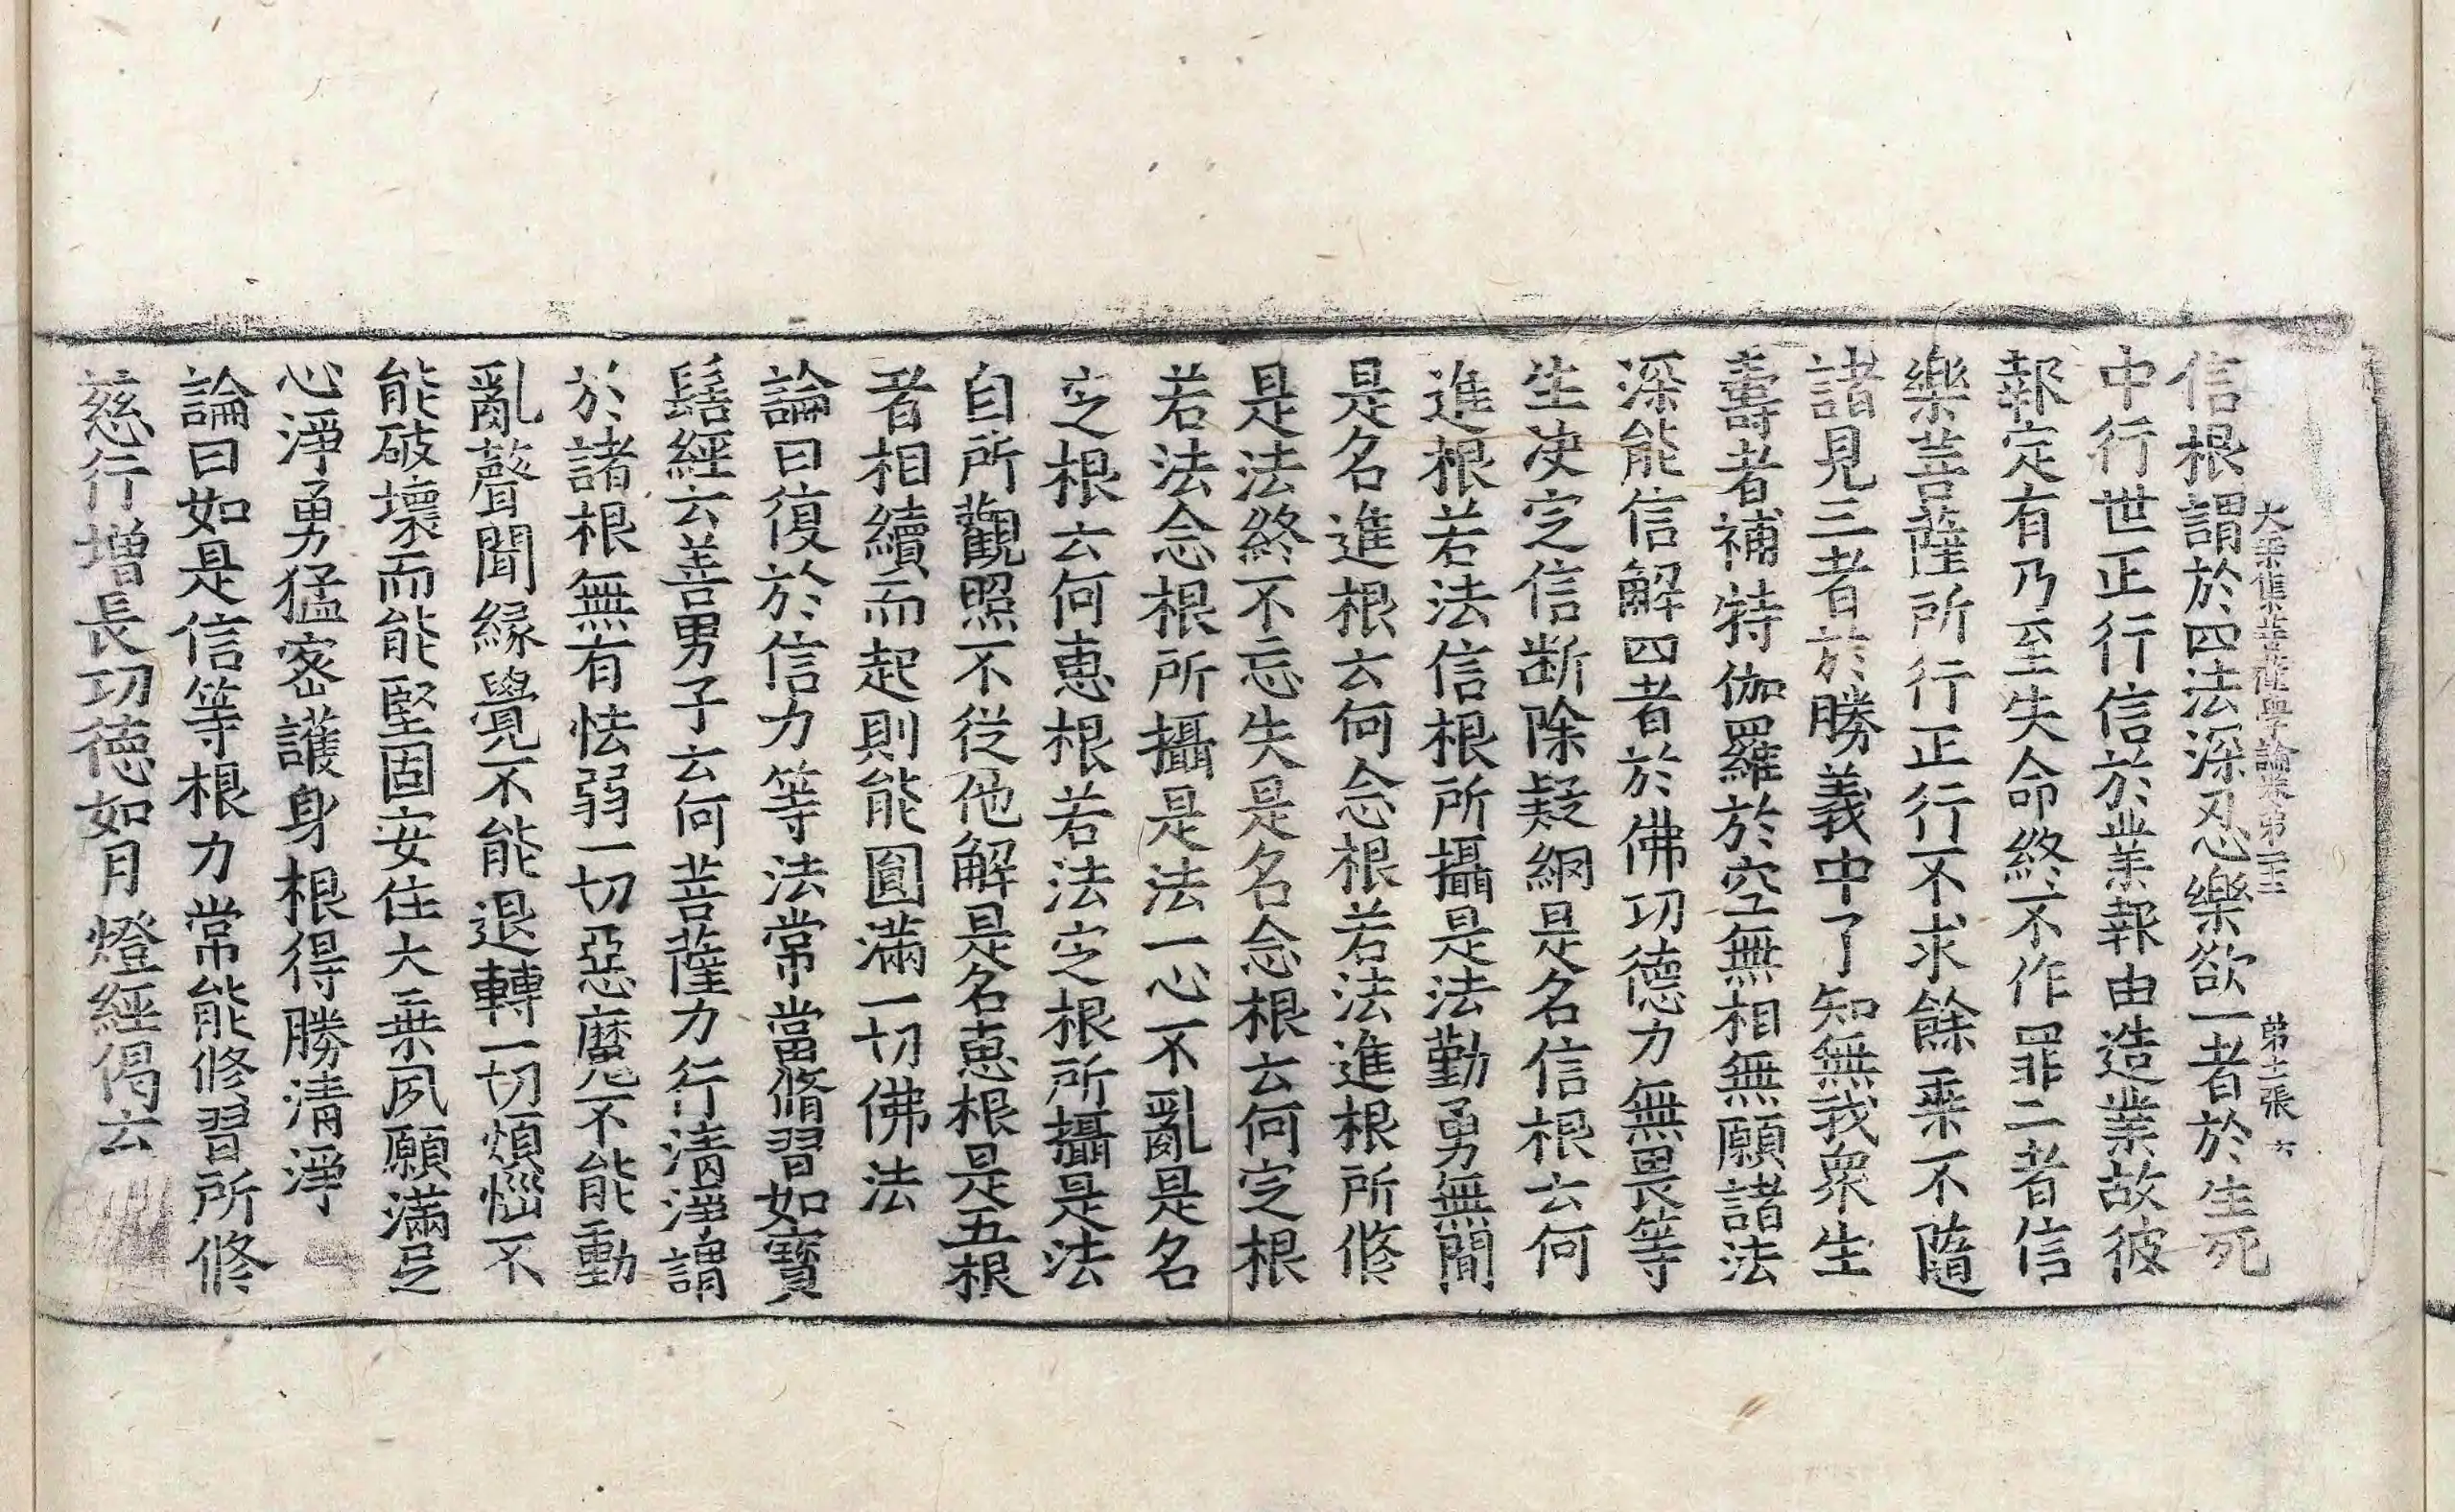 大乘集菩薩學論卷第二十三 第十二張 六
信根謂於四法深忍樂欲一者於生死
中行世正行信於業報由造業故彼
報定有乃至失命終不作罪二者信
樂菩薩所行正行不求餘乘不隨
諸見三者於勝義中了知無我衆生
壽者補特伽羅於空無相無願諸法
深能信解四者於佛功德力無畏等
生决定信斷除疑網是名信根云何
進根若法信根所攝是法勤勇無間
是名進根云何念根若法進根所修
是法終不忘失是名念根云何定根
若法念根所攝是法一心不亂是名
定根云何恵根若法定根所攝是法
自所觀照不從他解是名恵根是五根
者相續而起則能圓滿一切佛法
論曰復於信力等法常當脩習如寶
髻經云善男子云何菩薩力行清淨謂
於諸根無有怯弱一切惡魔不能動
亂聲聞緣覺不能退轉一切煩惱不
能破壞而能堅固安住大乘夙願滿足
心淨勇猛密護身根得勝清淨
論曰如是信等根力常能修習所修
慈行增長功德如月燈經偈云